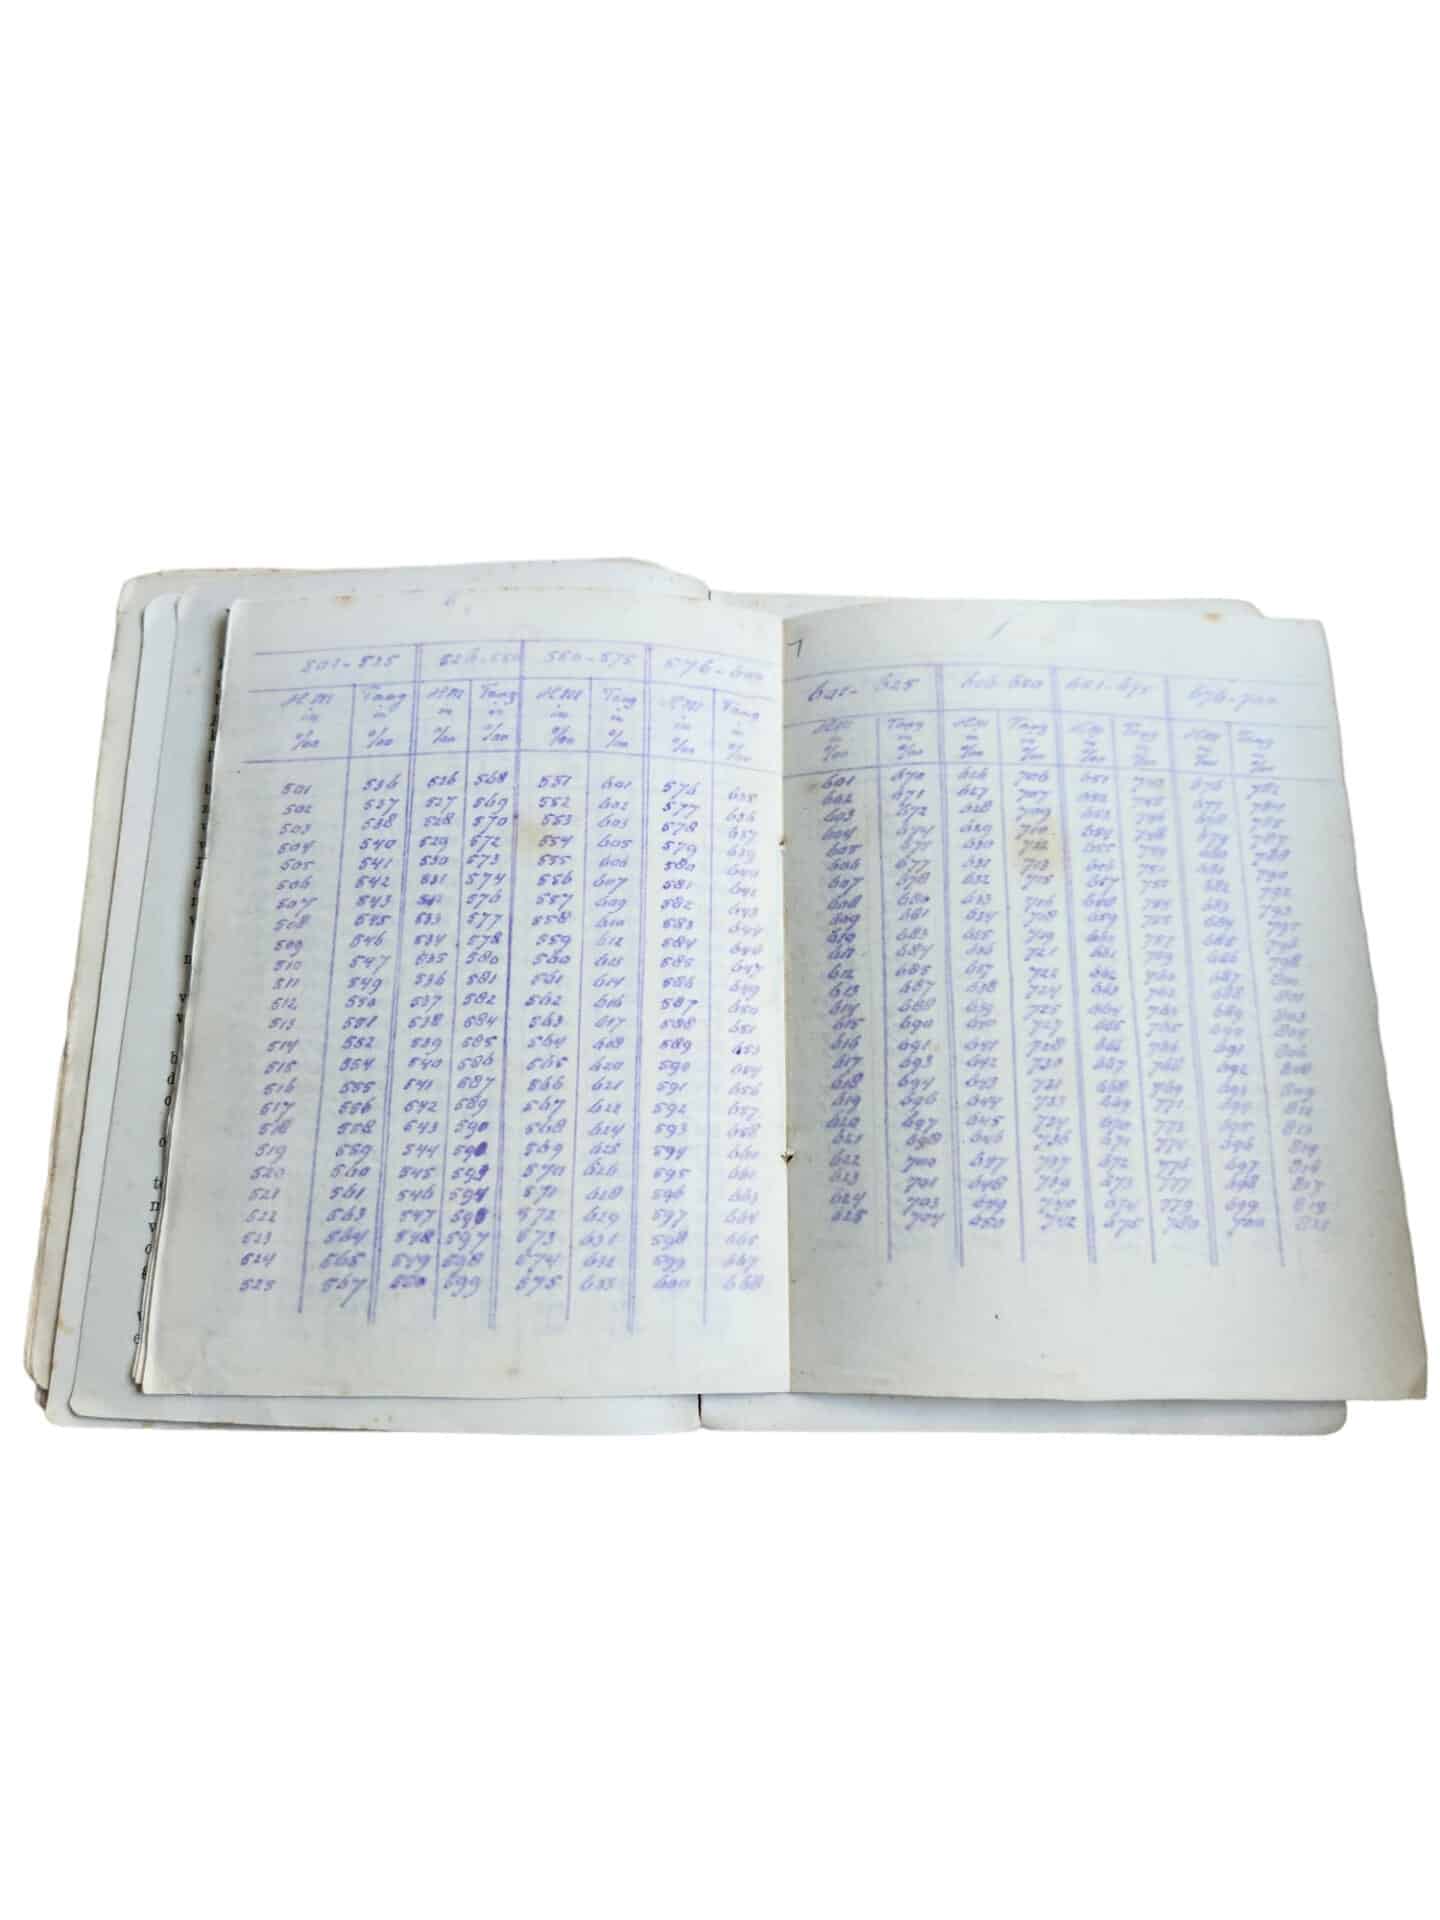 6
501-535 526-550 550-575 576-600
HM Tang HM Tang HM Tang HM Tang
in in in in in in in in
‰ ‰ ‰ ‰ ‰ ‰ ‰ ‰
501 536 526 568 551 601 576 635
502 537 527 569 552 602 577 636
503 538 528 570 553 603 578 637
504 540 529 572 554 605 579 639
505 541 530 573 555 606 580 640
506 542 531 574 556 607 581 642
507 543 532 576 557 609 582 643
508 545 533 577 558 610 583 644
509 546 534 578 559 612 584 646
510 547 535 580 560 613 585 647
511 549 536 581 561 614 586 649
512 550 537 582 562 616 587 650
513 551 538 584 563 617 588 651
514 552 539 585 564 618 589 653
515 554 540 586 565 620 590 654
516 555 541 587 566 621 591 656
517 556 542 589 567 622 592 657
518 558 543 590 568 624 593 658
519 559 544 569 625 594 660
520 560 545 593 570 626 595 661
521 561 546 594 571 628 596 663
522 563 547 572 629 597 664
523 564 548 597 573 631 598 665
524 565 549 598 574 632 599 667
525 567 550 599 575 633 600 668
7
601-625 626-650 651-675 676-700
HM Tang HM Tang HM Tang HM Tang
in in in in in in
‰ ‰ ‰ ‰ ‰ ‰ ‰ ‰
601 670 626 706 651 676 782
602 671 627 707 652 745 677 784
603 672 628 709 653 746 678 785
604 674 629 710 654 748 679 787
605 675 630 712 655 749 680 788
606 677 631 713 656 751 681 790
607 678 632 715 657 752 682 792
608 680 633 716 658 754 683 793
609 681 634 718 659 755 684 795
610 683 635 719 660 757 685 796
611 684 636 721 661 759 686 798
612 685 637 722 662 760 687 800
613 687 638 724 663 762 688 801
614 688 639 725 664 763 689 803
615 690 640 727 665 765 690 804
616 691 641 728 666 766 691 806
617 693 642 730 667 768 692 808
618 694 643 731 668 769 693 809
619 696 644 733 669 771 694 811
620 697 645 734 670 772 695 813
621 698 646 736 671 774 696 814
622 700 647 737 672 776 697 816
623 701 648 739 673 777 698 817
624 703 649 740 674 779 699 819
625 704 650 742 675 780 700 821